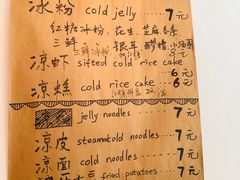 冰粉 cold jelly ······ 7元
红糖冰粉: 花生 芝麻
三鲜 三鲜冰粉 银耳 醪糟 小汤圆
凉虾 sifted cold rice cake 6元
凉糕 cold rice cake ···· 6元
jelly noodles ······ 7元
凉皮 steamed cold noodles ··· 7元
凉面 cold noodles ······ 7元
fried potatoes ···· 7元